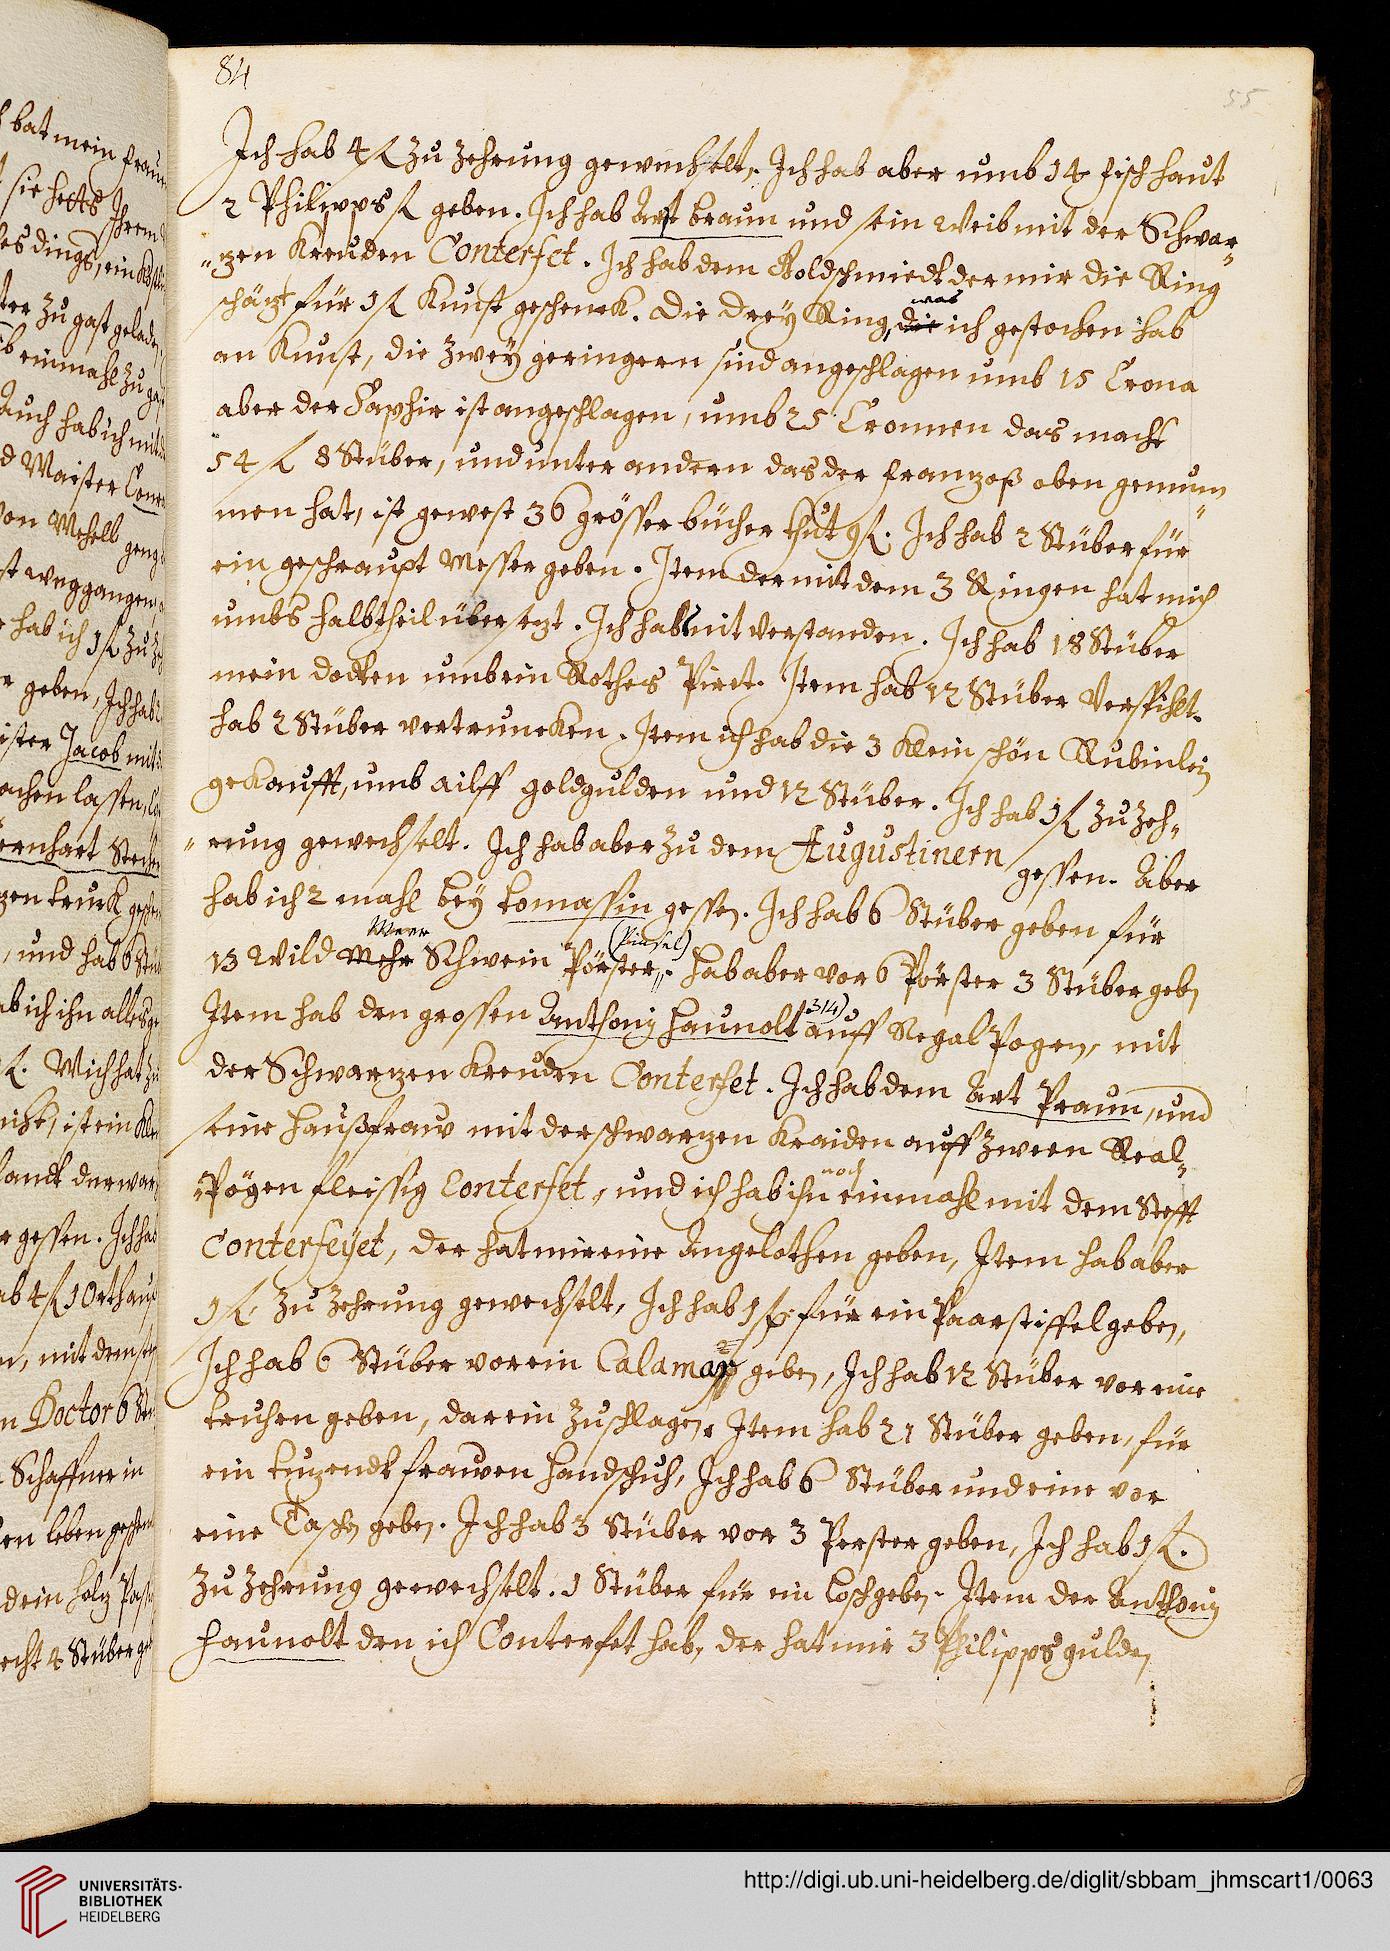 84
55
Ich hab 4 fl zu zehrung gewechselt. Ich hab aber umb 14 fischhaut
2 Philipps fl geben. Ich hab Art braun und sein Weib mit der Schwar„
„zen Kreuden Conterfet. Ich hab dem Goldschmiedt der mir die Ring
schäzt für 1 fl Kunst geschenck. Die drey Ring, die ich gestochen hab
was
an Kunst, die zwey geringern sind angeschlagen umb 15 Crona
aber der Saphir ist angeschlagen, umb 25 Cronnen das macht
54 fl 8 Stüber, und unter andern das der franzoß oben genum„
men hat, ist gewest 36 grösser bücher thut 9 fl. Ich hab 2 Stüber für
ein geschraupt Messer geben. Item der mit dem 3 Ringen hat mich
umbs halbtheil übersezt. Ich habs nit verstanden. Ich hab 18 Stüber
mein dockten umb ein Rothes Piret. Item hab 12 Stüber Verspihlt.
hab 2 Stüber vertruncken. Item ich hab die 3 Klein schön Rubinlein
gekaufft, umb ailff goldgulden und 12 Stüber. Ich hab 1 fl zu zeh„
„rung gewechselt. Ich hab aber zu dem Augustinern gessen. Aber
hab ich 2 mahl bey tomassin gessen. Ich hab 6 Stüber geben für
13 Wild Mehr Schwein Pörster. hab aber vor 6 Pörster 3 Stüber geben
Meer (Pinsel)
Item hab den grossen Anthonij haunolt auff Regal Pogen, mit
314)
der Schwarzen Kreuden Conterfet. Ich hab dem Art Praun, und
seine haußfraw mit der schwarzen Kraiden auff zween Real„
„Pögen fleissig Conterfet, und ich hab ihn noch einmahl mit dem Stefft
Conterfeÿet, der hat mir eine Angelothen geben, Item hab aber
1 fl. zu zehrung gewechselt, Ich hab 1 fl. für ein Paar stiffel geben,
Ich hab 6 Stüber vor ein Calamar geben, Ich hab 12 Stüber vor eine
truhen geben, darein zuschlagen. Item hab 21 Stüber geben, für
ein tuzendt frawen handschuh, Ich hab 6 Stüber und eine vor
eine Taschen geben. Ich hab 3 Stüber vor 3 Perster geben, Ich hab 1 fl.
zu zehrung gewechselt. 1 Stüber für ein Losch geben. Item der Anthonij
haunolt den ich Conterfet hab, der hat mir 3 Philipps gulden
UNIVERSITÄTS-
BIBLIOTHEK
HEIDELBERG
http://digi.ub.uni-heidelberg.de/diglit/sbbam_jhmscart1/0063